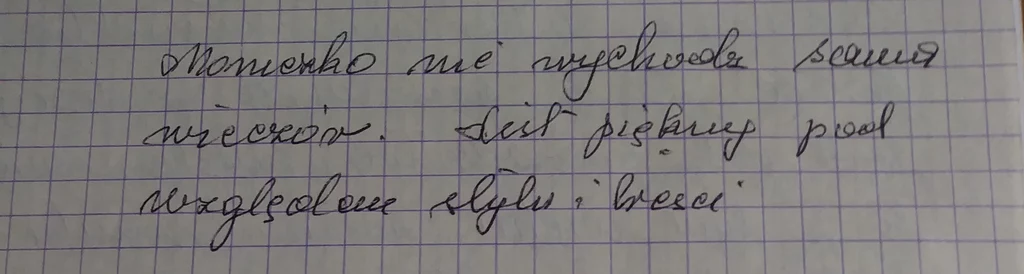 Mamenko nie wychodź sama
wieczór. List piękny pod
względem stylu i treści